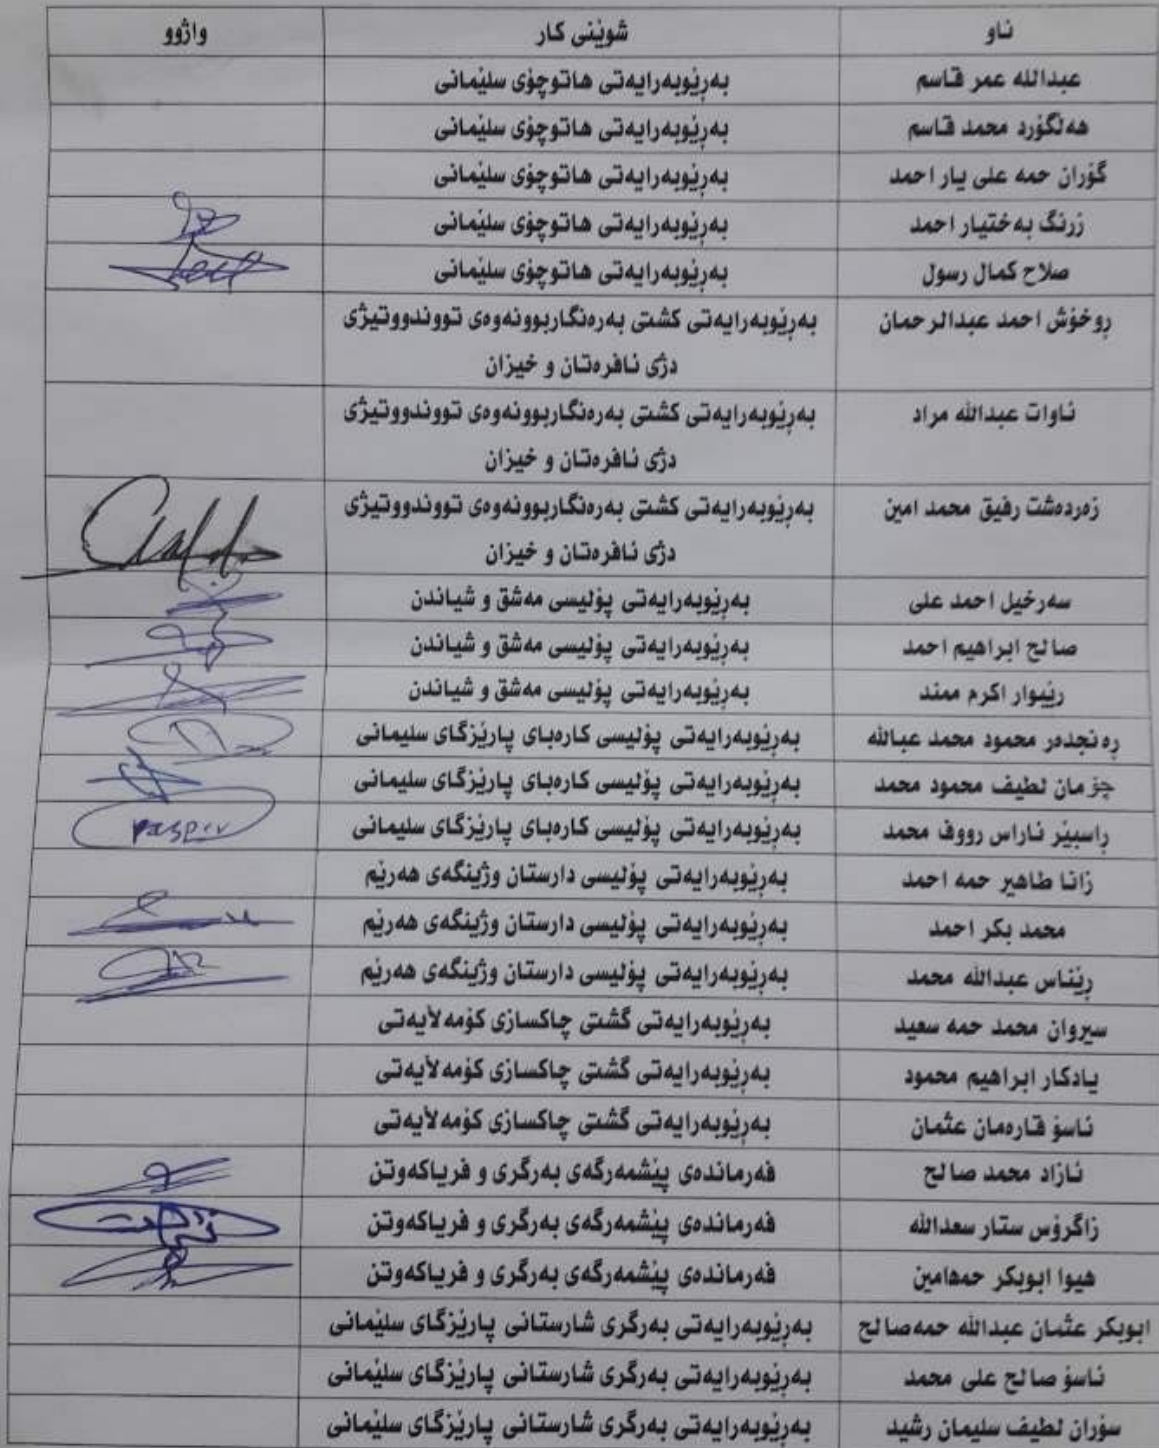 ناو شوێنی کار واژوو
عبدالله عمر قاسم بەڕێوبەرایەتی هاتوچۆی سلێمانی
هەڵگۆرد محمد قاسم بەڕێوبەرایەتی هاتوچۆی سلێمانی
گۆران حمه علی یار احمد بەڕێوبەرایەتی هاتوچۆی سلێمانی
زرنگ بەختیار احمد بەڕێوبەرایەتی هاتوچۆی سلێمانی
صلاح کمال رسول بەڕێوبەرایەتی هاتوچۆی سلێمانی
ڕوخۆش احمد عبدالرحمان بەڕێوبەرایەتی کشتی بەرەنگاربوونەوەی تووندووتیژی
دژی ئافرەتان و خیزان
ئاوات عبدالله مراد بەڕێوبەرایەتی کشتی بەرەنگاربوونەوەی تووندووتیژی
دژی ئافرەتان و خیزان
زەردەشت رفیق محمد امین بەڕێوبەرایەتی کشتی بەرەنگاربوونەوەی تووندووتیژی
دژی ئافرەتان و خیزان
سەرخیل احمد علی بەڕێوبەرایەتی پۆلیسی مەشق و شیاندن
صالح ابراهیم احمد بەڕێوبەرایەتی پۆلیسی مەشق و شیاندن
رێبوار اکرم ممند بەڕێوبەرایەتی پۆلیسی مەشق و شیاندن
ڕەنجدەر محمود محمد عبالله بەڕێوبەرایەتی پۆلیسی کارەبای پارێزگای سلیمانی
چۆمان لطیف محمود محمد بەڕێوبەرایەتی پۆلیسی کارەبای پارێزگای سلیمانی
ڕاسبێر ئاراس رووف محمد بەڕێوبەرایەتی پۆلیسی کارەبای پارێزگای سلیمانی
زانا طاهیر حمه احمد بەڕێوبەرایەتی پۆلیسی دارستان وژینگەی هەرێم
محمد بکر احمد بەڕێوبەرایەتی پۆلیسی دارستان وژینگەی هەرێم
ڕێناس عبدالله محمد بەڕێوبەرایەتی پۆلیسی دارستان وژینگەی هەرێم
سیروان محمد حمه سعید بەڕێوبەرایەتی گشتی چاکسازی کۆمەڵایەتی
یادکار ابراهیم محمود بەڕێوبەرایەتی گشتی چاکسازی کۆمەڵایەتی
ئاسۆ قارەمان عثمان بەڕێوبەرایەتی گشتی چاکسازی کۆمەڵایەتی
ئازاد محمد صالح فەرماندەی پێشمەرگەی بەرگری و فریاکەوتن
زاگرۆس ستار سعدالله فەرماندەی پێشمەرگەی بەرگری و فریاکەوتن
هیوا ابوبکر حمەامین فەرماندەی پێشمەرگەی بەرگری و فریاکەوتن
ابوبکر عثمان عبدالله حمەصالح بەڕێوبەرایەتی بەرگری شارستانی پارێزگای سلێمانی
ئاسۆ صالح علی محمد بەڕێوبەرایەتی بەرگری شارستانی پارێزگای سلێمانی
سۆران لطیف سلیمان رشید بەڕێوبەرایەتی بەرگری شارستانی پارێزگای سلێمانی